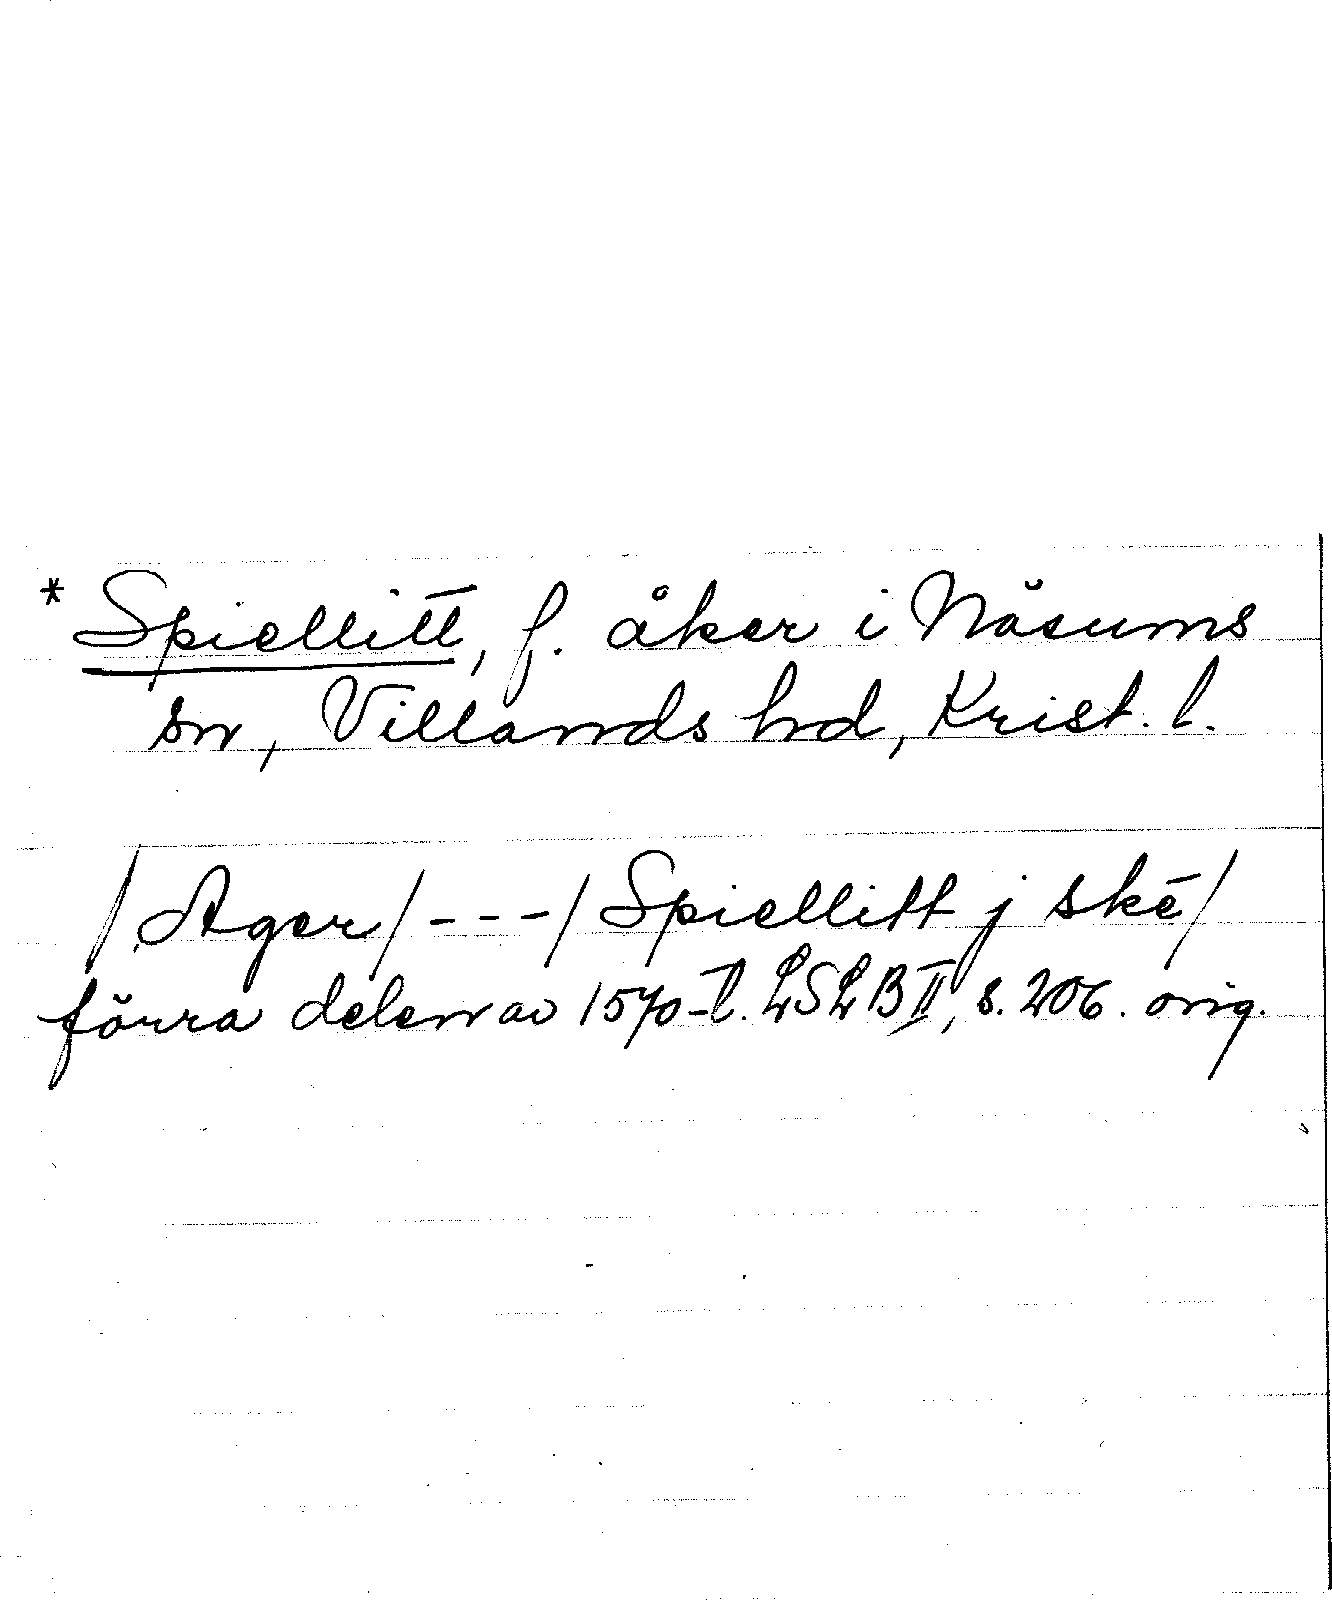 * Spiellitt, f. åker i Näsums
sn, Villands hd, Krist. l.
/Ager/---/Spiellitt j skē/
förra delen av 1570-t. LSLB II, s. 206. orig.